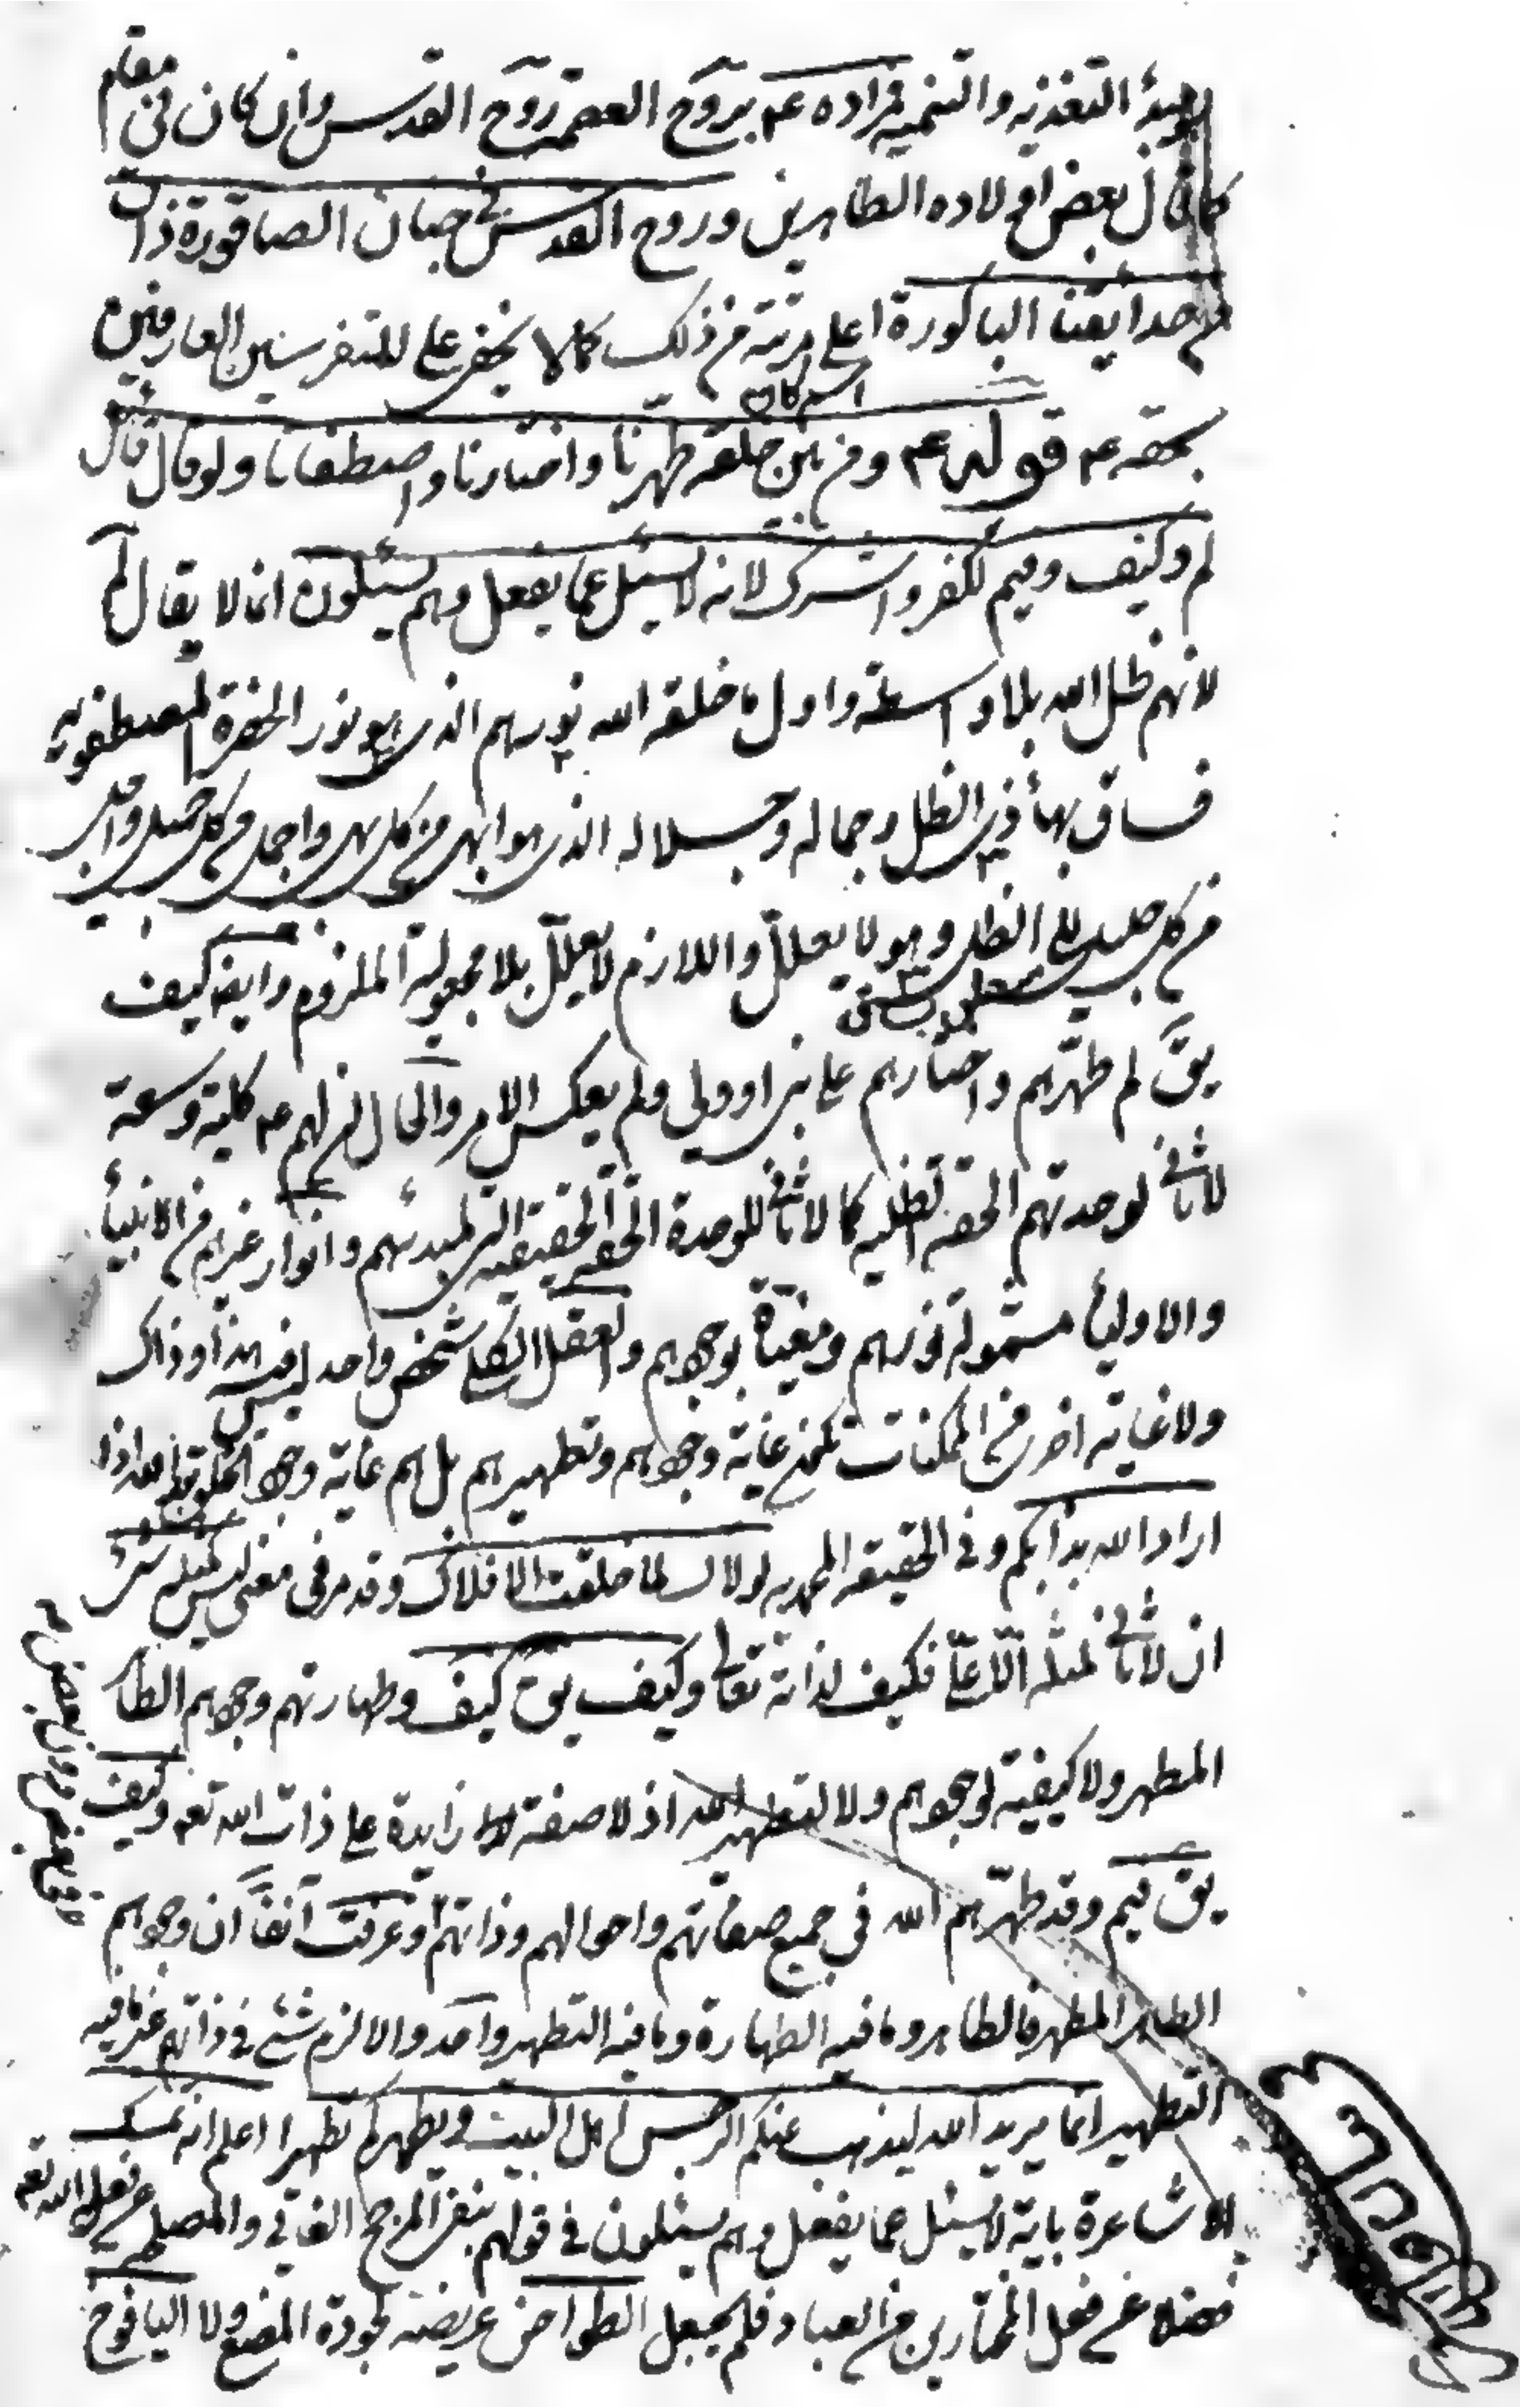 التغذيه والتنميه فمراده عم بروح العصمة روح القدس وان كان فى مقام
كما قال بعض اولاده الطاهرين وروح القدس فى جنان الصاقورة ذاق
من حدايقنا الباكورة اعلى مرتبة من ذلك كما لا يخفى على المتفرسين العارفين
بحقه عم قوله عم ومن بين خلقه طهرنا واختارنا واصطفانا ولو قال قائل
لم وكيف وفيم لكفر واشرك لانه لا يسئل عما يفعل وهم يسئلون انما لا يقال لم
لانهم ظل الله بلا واسطة واول ما خلقه الله نورهم الذى هو نور الحضرة المصطفويه
فساق بهاء ذى الظل وجماله وجلاله الذى هو ابهى من كل بهى واجمل من كل جميل واجل
من كل جليل الى الظل وهو لا يعلل واللازم لا يعلل بلا مجعولية الملزوم وايضا كيف
يق لم طهرهم واختارهم على نبى او ولى ولم يعكس الامر والحال ان لهم عم كلية وسعة
لا ثانى لوحدتهم الحقه الظليه كما لا ثانى للوحدة الحقه الحقيقيه التى لمبدئهم وانوار غيرهم من الانبياء
والاولياء مشمولة نورهم ومغياة بوجودهم والعقل الكلى شخص واحد ليس فيه هذا وذاك
ولا غاية اخرى من الممكنات تكون غاية وجودهم وتطهيرهم بل هم غاية وجود
اراد الله بدأ بكم وفى الحقيقه المحمديه لولاك لما خلقت الافلاك وقد مر فى معنى ليس كمثله شئ
ان لا ثانى لمثله الاعلى فكيف لذاته تعالى وكيف يق كيف وطهارتهم وجودهم الطاهر
المطهر ولا كيفية لوجودهم ولا لتطهير الله اذ لا صفة زايدة على ذات الله تعه وكيف
يق فيم وقد طهرهم الله فى جميع صفاتهم واحوالهم وذاتهم وعرفت آنفا ان وجودهم
الطاهر المطهر فالطاهر وما فيه الطهارة وما فيه التطهير واحد والا لزم شئ فى ذاتهم غير ما فيه
التطهير انما يريد الله ليذهب عنكم الرجس اهل البيت ويطهركم تطهيرا اعلم انه تمسك
الاشاعرة باية لا يسئل عما يفعل وهم يسئلون فى قولهم بنفى المرجح الغائى والمصلحه عن فعل الله تعه
فضلا عن فعل المختارين من العباد فلم يجعل الطواحن عريضه لجودة المضغ ولا اليافوخ